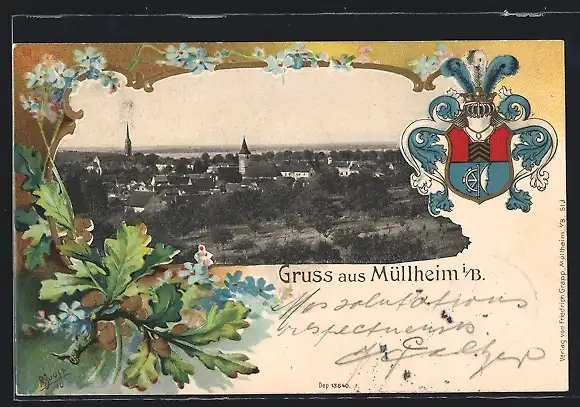 Gruss aus Müllheim i/B.
Mes salutations
respectueuses
Dep 13640.
Verlag von Friedrich Grapp, Müllheim i/B. 513